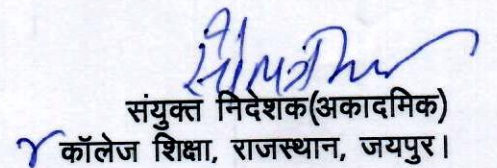 संयुक्त निदेशक(अकादमिक)
कॉलेज शिक्षा, राजस्थान, जयपुर।